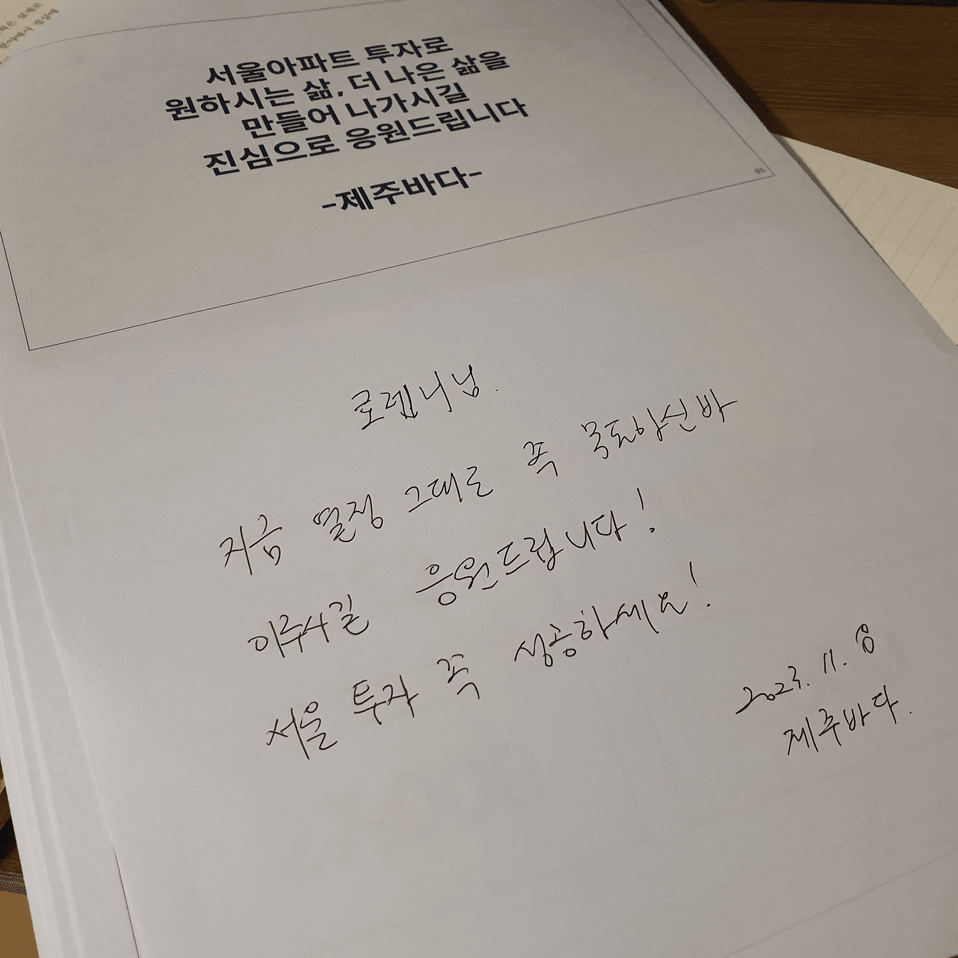 서울아파트 투자로
원하시는 삶, 더 나은 삶을
만들어 나가시길
진심으로 응원드립니다
-제주바다-
로렘니님.
지금 열정 그대로 꼭 목표하신바
이루시길 응원드립니다!
서울 투자 꼭 성공하세요!
2023. 11. 8
제주바다.